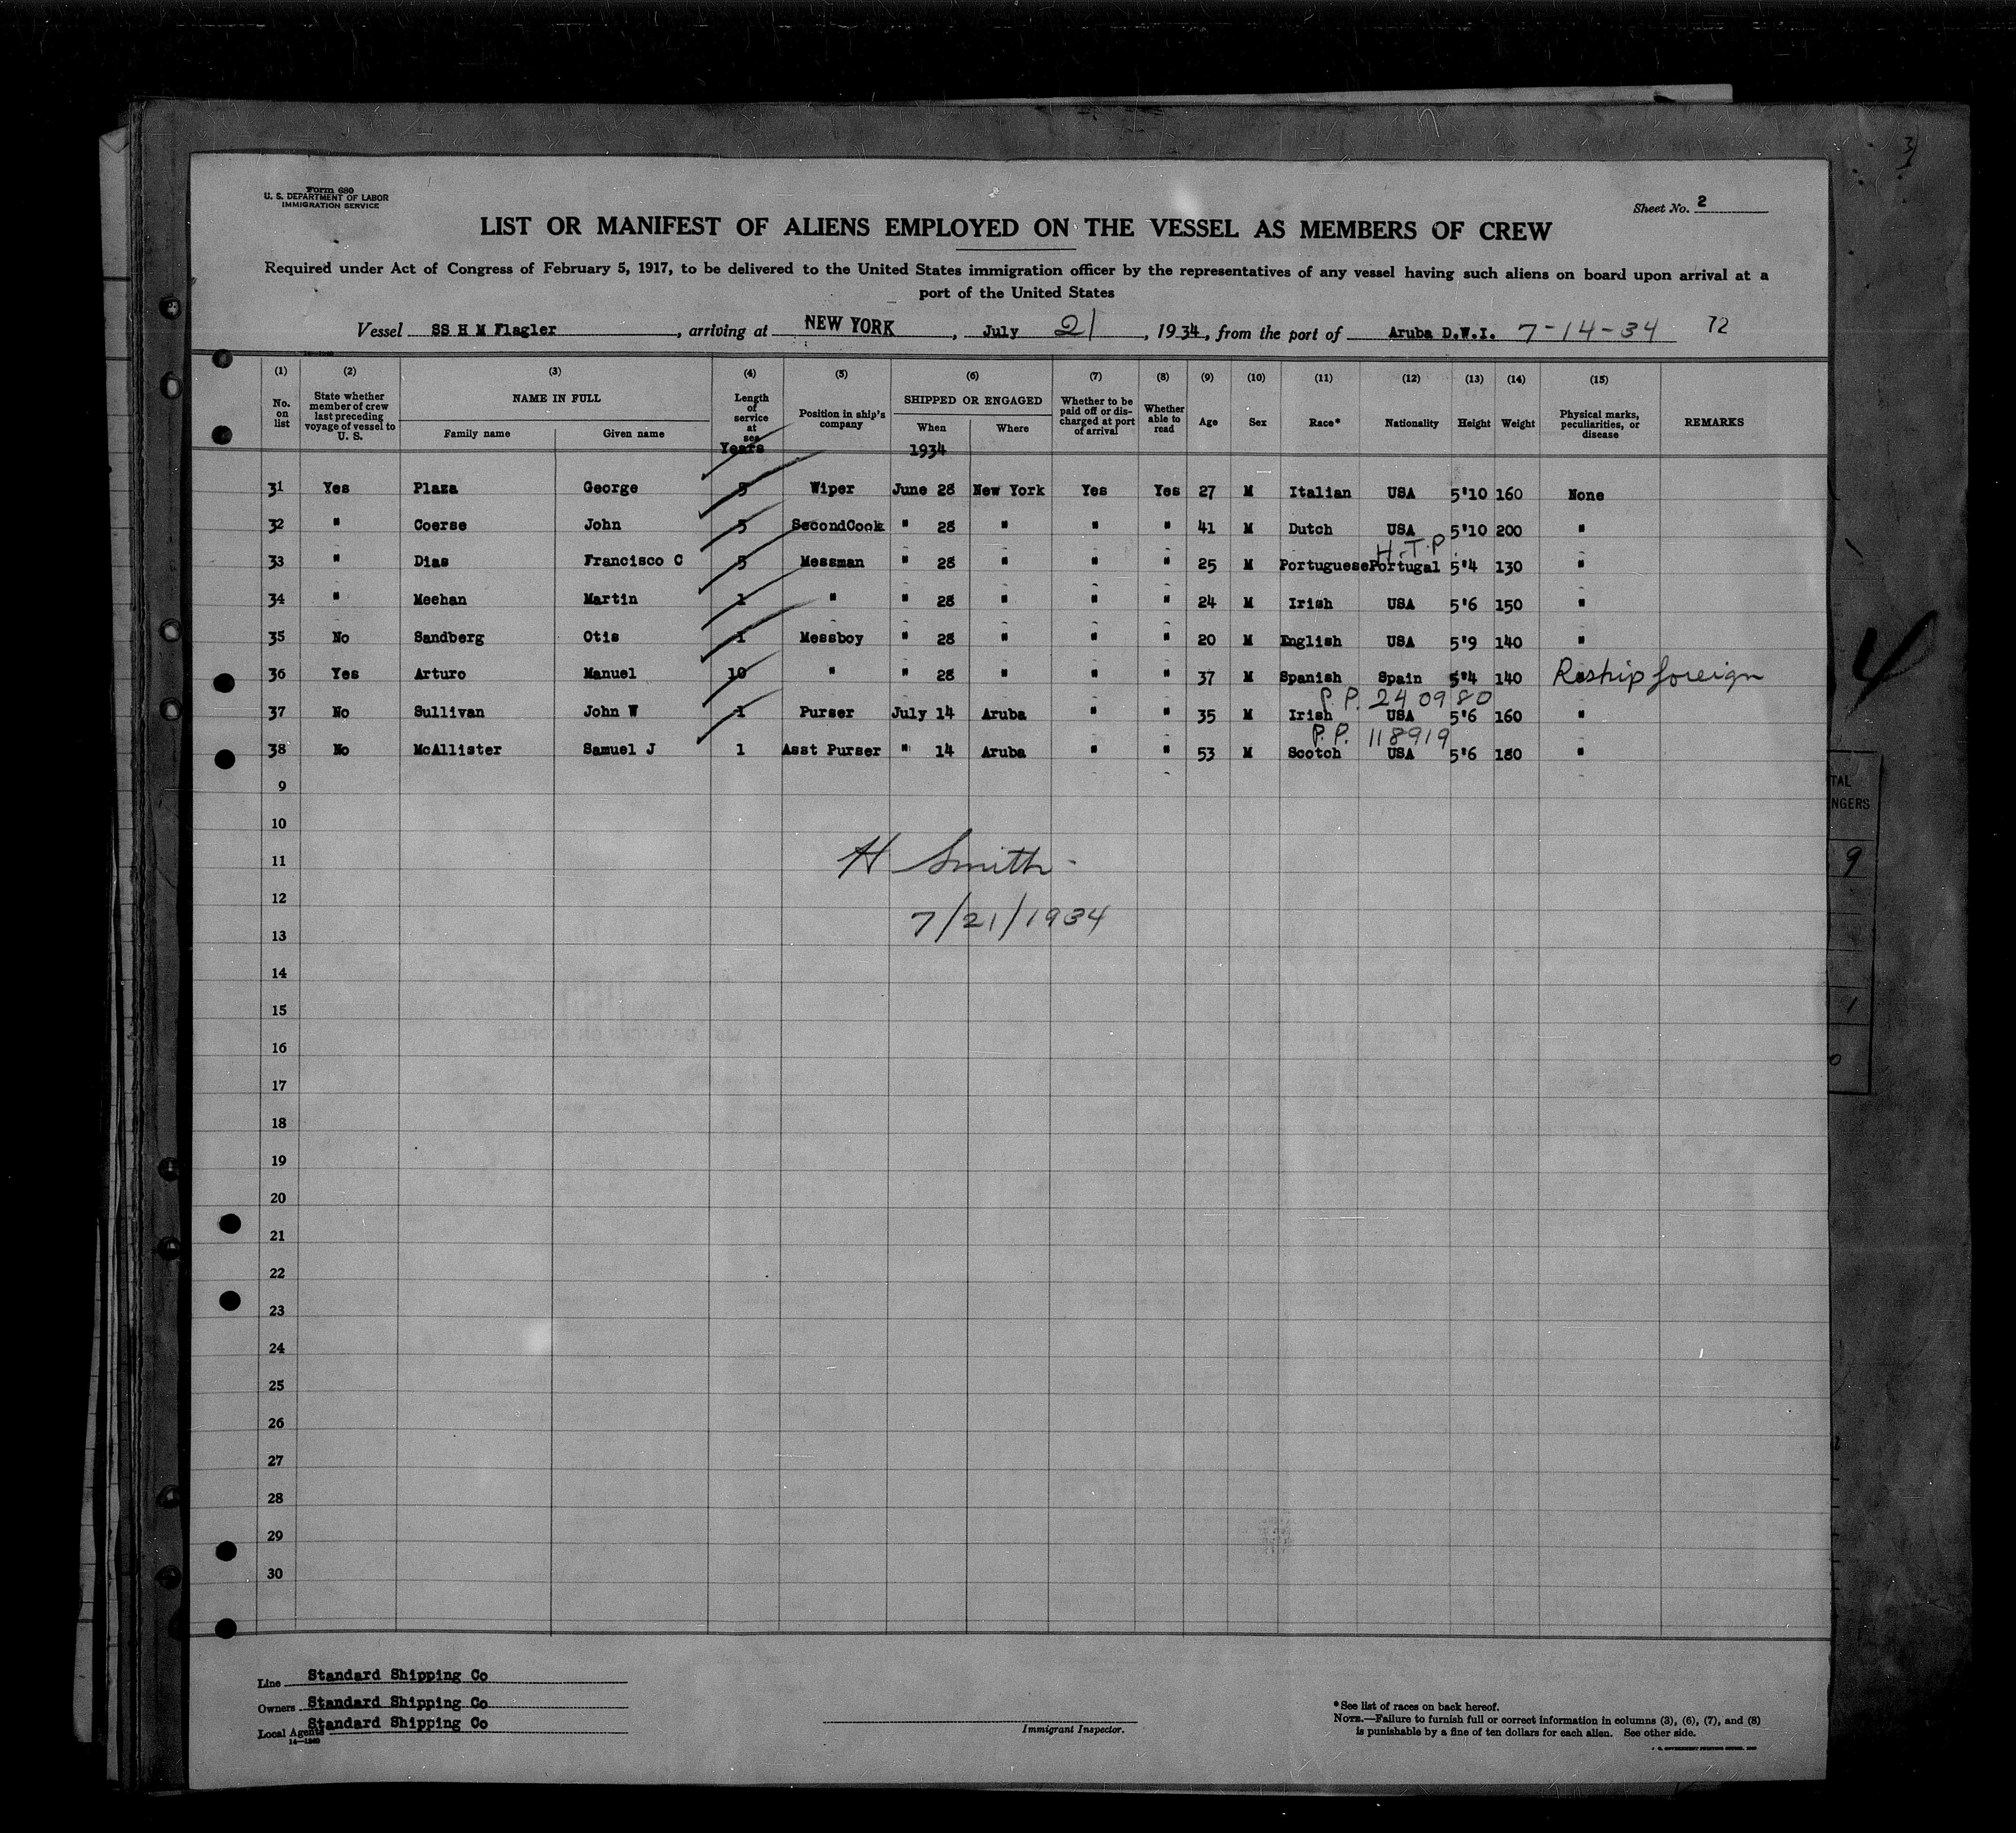 Form 680
U. S. DEPARTMENT OF LABOR
IMMIGRATION SERVICE
Sheet No. 2
LIST OR MANIFEST OF ALIENS EMPLOYED ON THE VESSEL AS MEMBERS OF CREW
Required under Act of Congress of February 5, 1917, to be delivered to the United States immigration officer by the representatives of any vessel having such aliens on board upon arrival at a
port of the United States
Vessel SS H M Flagler, arriving at NEW YORK, July 21, 1934, from the port of Aruba D.W.I. 7-14-34 72
(1) (2) (3) (4) (5) (6) (7) (8) (9) (10) (11) (12) (13) (14) (15)
No. on list
State whether member of crew last preceding voyage of vessel to U. S.
NAME IN FULL
Family name Given name
Length of service at sea
Years
Position in ship's company
SHIPPED OR ENGAGED
When Where
1934
Whether to be paid off or discharged at port of arrival
Whether able to read
Age Sex Race* Nationality Height Weight
Physical marks, peculiarities, or disease
REMARKS
31 Yes Plaza George 5 Wiper June 28 New York Yes Yes 27 M Italian USA 5'10 160 None
32 " Coerse John 5 SecondCook " 28 " " " 41 M Dutch USA 5'10 200 "
H.T.P.
33 " Dias Francisco C 5 Messman " 28 " " " 25 M Portuguese Portugal 5'4 130 "
34 " Meehan Martin 1 " " 28 " " " 24 M Irish USA 5'6 150 "
35 No Sandberg Otis 1 Messboy " 28 " " " 20 M English USA 5'9 140 "
36 Yes Arturo Manuel 10 " " 28 " " " 37 M Spanish Spain 5'4 140 Reship foreign
P.P. 240980
37 No Sullivan John W 1 Purser July 14 Aruba " " 35 M Irish USA 5'6 160 "
P.P. 118919
38 No McAllister Samuel J 1 Asst Purser " 14 Aruba " " 53 M Scotch USA 5'6 180 "
9
10
11
H Smith
12
7/21/1934
13
14
15
16
17
18
19
20
21
22
23
24
25
26
27
28
29
30
Line Standard Shipping Co
Owners Standard Shipping Co
Local Agents Standard Shipping Co
14—1240
Immigrant Inspector.
*See list of races on back hereof.
NOTE.—Failure to furnish full or correct information in columns (3), (6), (7), and (8)
is punishable by a fine of ten dollars for each alien. See other side.
TAL
NGERS
9
1
0
4
3